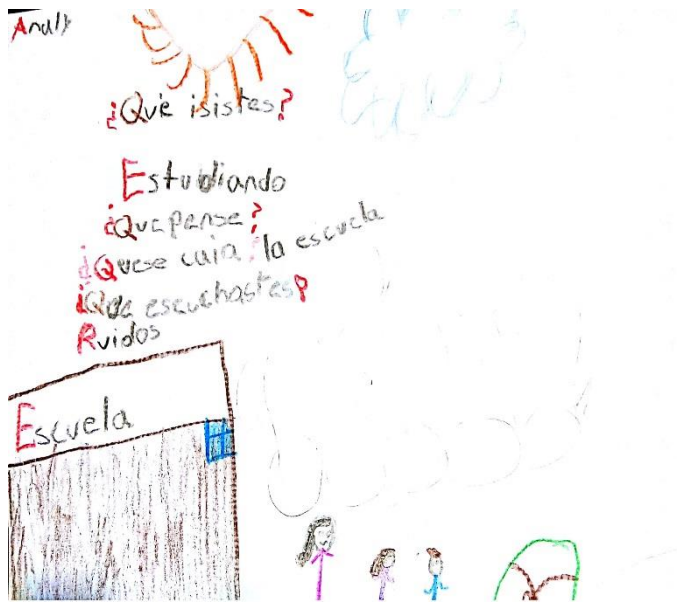 Anali
¿Qué isistes?
Estudiando
¿Que pense?
¿Quese caia la escuela
¿Que escuchastes?
Ruidos
Escuela